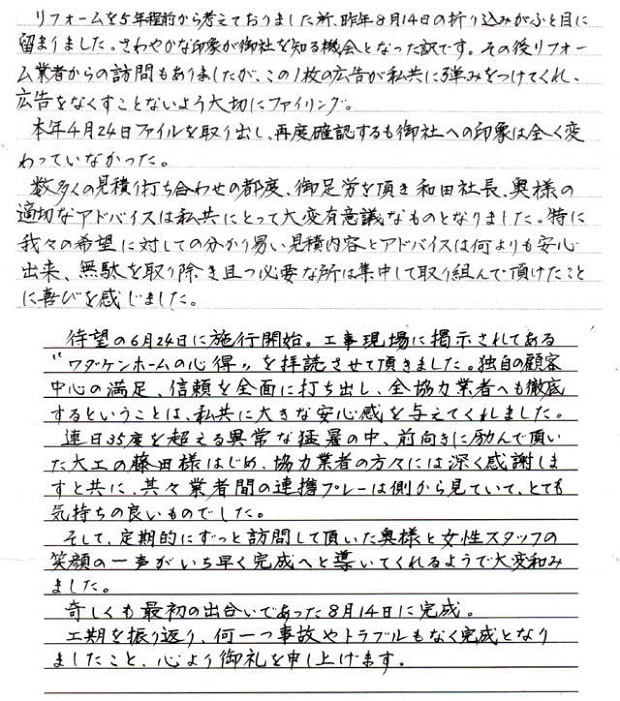 リフォームを5年程前から考えておりました所、昨年8月14日の折り込みがふと目に
留まりました。さわやかな印象が御社を知る機会となった訳です。その後リフォー
ム業者からの訪問もありましたが、この1枚の広告が私共に弾みをつけてくれ、
広告をなくすことないよう大切にファイリング。
本年4月24日ファイルを取り出し、再度確認するも御社への印象は全く変
わっていなかった。
数多くの見積り打ち合わせの都度、御足労を頂き和田社長、奥様の
適切なアドバイスは私共にとって大変有意義なものとなりました。特に
我々の希望に対しての分かり易い見積内容とアドバイスは何よりも安心
出来、無駄を取り除き且つ必要な所は集中して取り組んで頂けたこと
に喜びを感じました。
待望の6月24日に施行開始。工事現場に掲示されてある
“ワダケンホームの心得〟を拝読させて頂きました。独自の顧客
中心の満足、信頼を全面に打ち出し、全協力業者へも徹底
するということは、私共に大きな安心感を与えてくれました。
連日35度を超える異常な猛暑の中、前向きに励んで頂い
た大工の藤田様はじめ、協力業者の方々には深く感謝しま
すと共に、其々業者間の連携プレーは側から見ていて、とても
気持ちの良いものでした。
そして、定期的にずっと訪問して頂いた奥様と女性スタッフの
笑顔の一声がいち早く完成へと導いてくれるようで大変和み
ました。
奇しくも最初の出合いであった8月14日に完成。
工期を振り返り、何一つ事故やトラブルもなく完成となり
ましたこと、心より御礼を申し上げます。